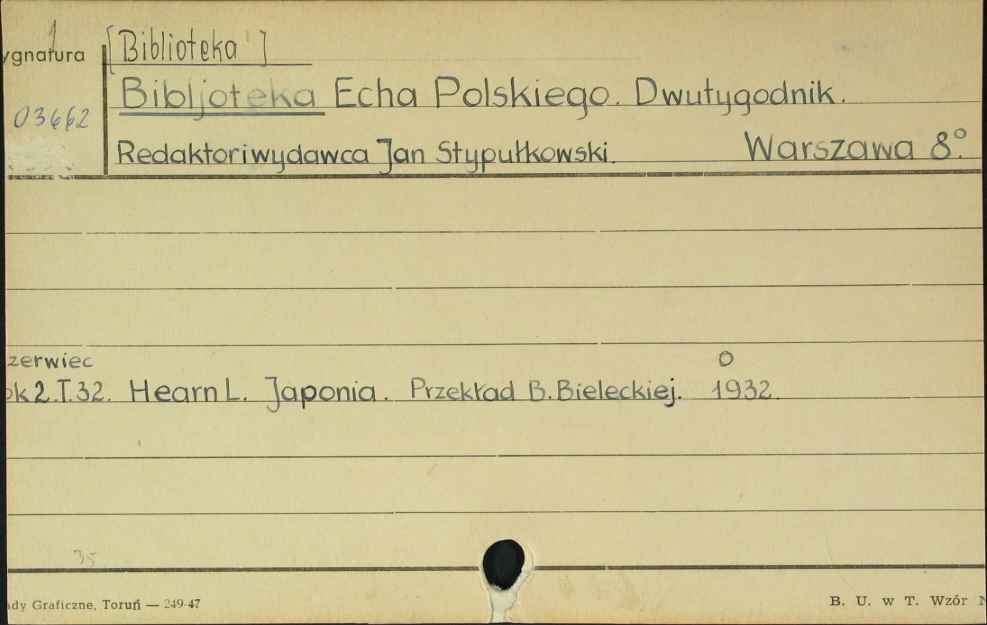 1
ygnatura [Biblioteka]
Bibljoteka Echa Polskiego. Dwutygodnik.
03662
Redaktor i wydawca Jan Stypułkowski. Warszawa 8°.
zerwiec 0
ok 2.T.32. Hearn L. Japonia. Przekład B. Bieleckiej. 1932.
35
ady Graficzne, Toruń — 249-47
B. U. w T. Wzór N